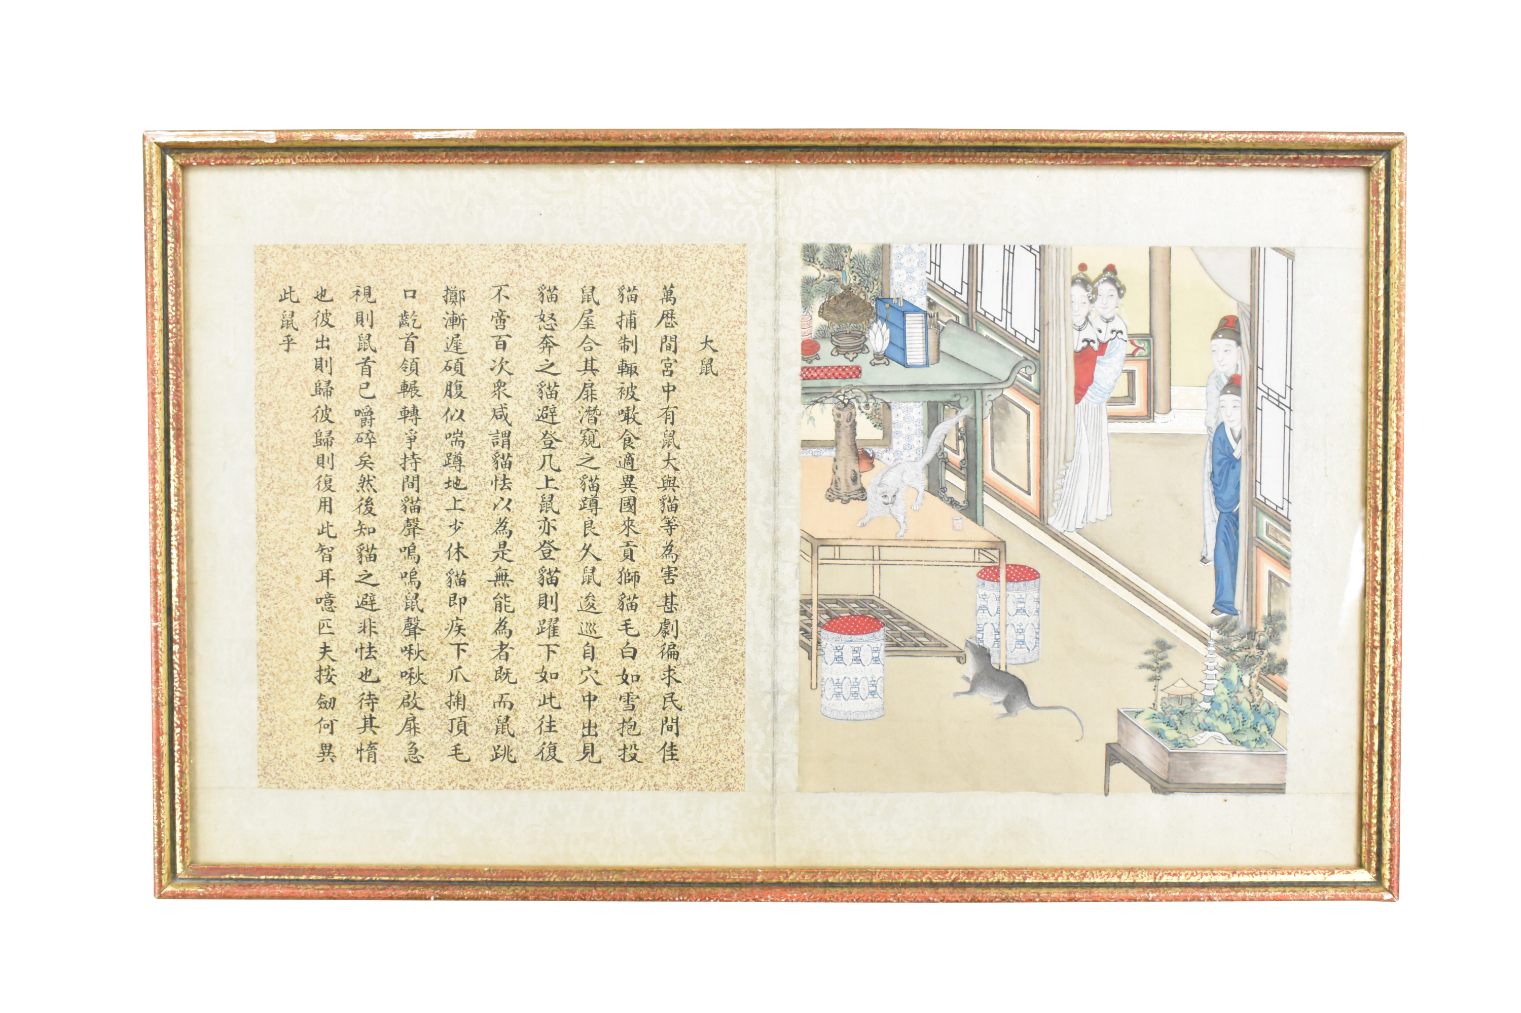 大鼠
萬歷間宮中有鼠大與貓等為害甚劇徧求民間佳
貓捕制輙被噉食適異國來貢獅貓毛白如雪抱投
鼠屋合其扉潛窺之貓蹲良久鼠逡巡自穴中出見
貓怒奔之貓避登几上鼠亦登貓則躍下如此往復
不啻百次衆咸謂貓怯以為是無能為者既而鼠跳
擲漸遲碩腹似喘蹲地上少休貓即疾下爪掬頂毛
口齕首領輾轉爭持間貓聲嗚嗚鼠聲啾啾啟扉急
視則鼠首已嚼碎矣然後知貓之避非怯也待其惰
也彼出則歸彼歸則復用此智耳噫匹夫按劒何異
此鼠乎